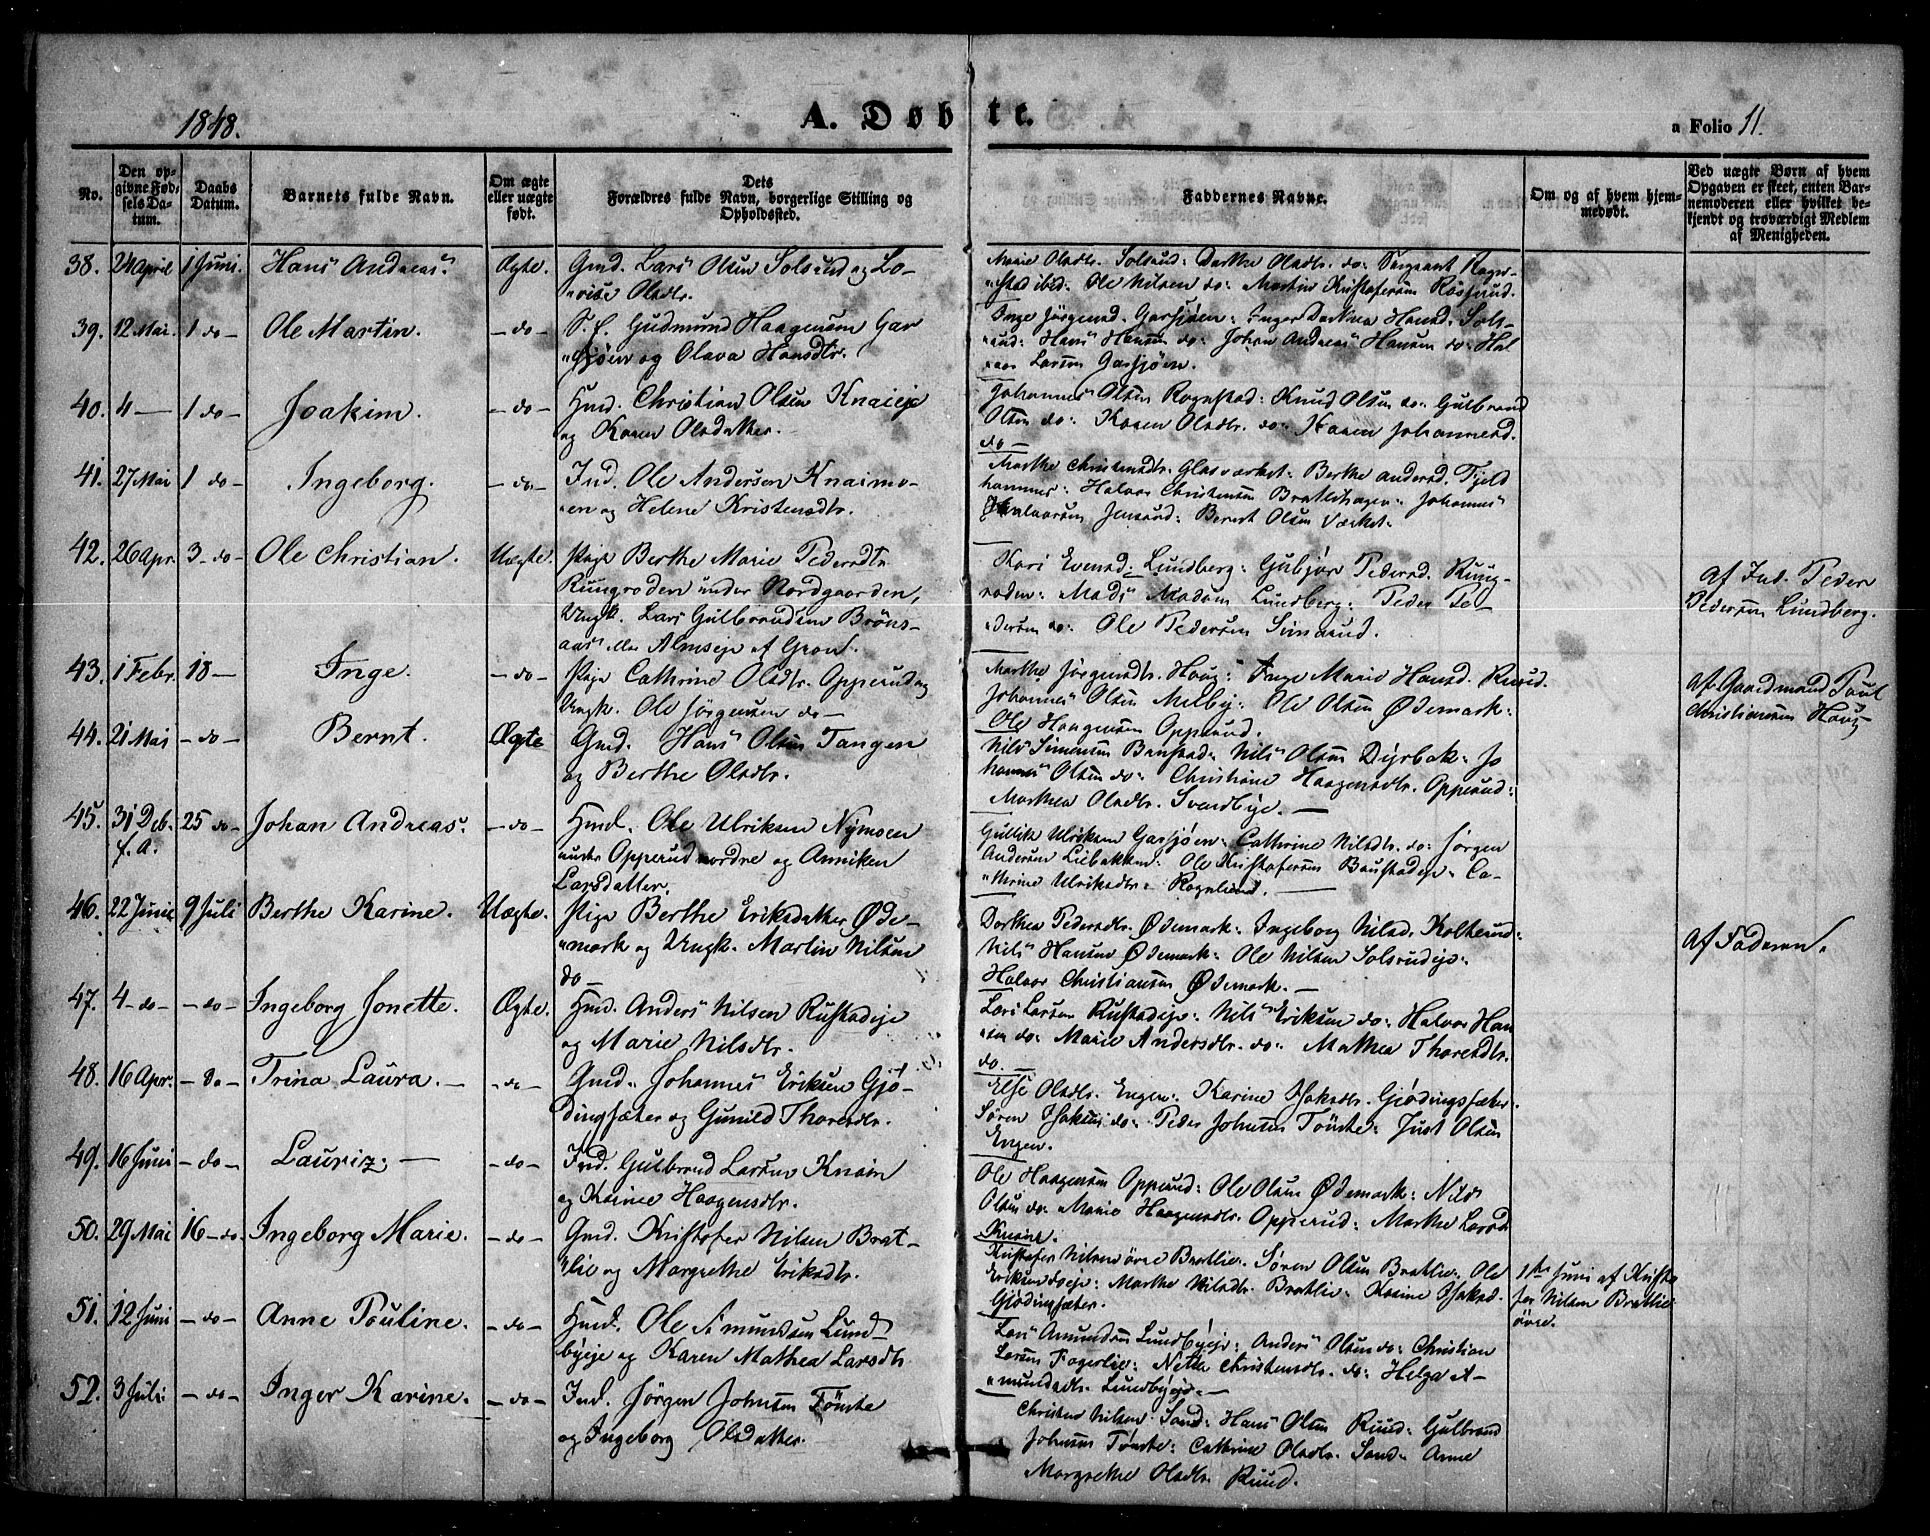 1848.
A. Døbte.
a Folio 11.
No.
Den op-
givne Fød-
sels Da-
tum.
Daabs
Datum.
Barnets fulde Navn.
Om ægte
eller uægte
født.
Dets
Forældres fulde Navn, borgerlige Stilling og
Opholdssted.
Faddernes Navne.
Om og af hvem hjem-
medøbt.
Ved uægte Børn af hvem
Opgaven er skeet, enten Bar-
nemoderen eller hvilket be-
kjendt og troværdigt Medlem
af Menigheden.
38. 24 April 1 Juni. Hans Andreas. Ægte. Gmd. Lars Olsen Solsrud og Lo-
"vise Olsdtr.
Marie Olsdtr. Solsrud: Dorthe Olsdtr. do: Sergeant Rogn-
"stad ibid: Ole Nilsen do: Martin Kristofersen
39. 12 Mai. 1 do- Ole Martin. -do- S. f. Gudmund Haagensøn Gar
"sjøen og Olava Hansdtr.
Inge Jørgensd. Garsjøen: Inger Dorthea Hansd. Sols-
"rud: Hans Hansen do: Johan Andreas Hansen do: Hal
"vor Larsen Garsjøen.
40. 4 - 1 do- Joakim. -do- Hmd. Christian Olsen Knaieje
og Karen Olsdatter.
Johannes Olsen Rognstad: Knud Olsen do: Gulbrand
Olsen do: Karen Olsdtr. do: Karen Johannesd.
do -
41. 27 Mai 1 do- Ingeborg. -do- Ind. Ole Andersen Knaimo-
"en og Helene Kristensdtr.
Marthe Christensdtr. Glasværket: Berthe Andersd. Fjeld
hammer: Halvor Christensen Bratlihagen: Johannes
Halvorsen Jensrud: Bernt Olsen Værket.
42. 26 Apr. 3-do- Ole Christian. Uægte. Pige Berthe Marie Pedersdtr.
Rungroden under Nordgaarden,
Ungk. Lars Gulbrandsen Brøns-
aas eller Almseje af Gran.
Kari Evensd. Lundberg: Gubjør Pedersd. Rung-
roden: Mads Madsen Lundberg: Peder Pe-
"dersen do: Ole Pedersen Simarud.
Af Ind. Peder
Pedersen Lundberg.
43. 1 Febr. 18 - Inge. -do- Pige Cathrine Olsdtr. Opperud og
Ungk. Ole Jørgensen do-
Marthe Jørgensdtr. Haug: Inge Marie Hansd. Ruud.
Johannes Olsen Melby: Ole Olsen Ødemark:
Ole Haagensen Opperud.
Af Gaardmand Poul
Christiansen Haug
44. 21 Mai -do- Bernt. Ægte. Gmd. Hans Olsen Tangen
og Berthe Olsdtr.
Nils Simensen Banstad: Nils Olsen Dyrbek: Jo
hannes Olsen do: Christine Haagensdtr. Opperud:
Marthea Olsdtr. Svendbye. -
45. 31 Deb. 25 do- Johan Andreas. -do- Hmd. Ole Ulriksen Nymoen
f. A.
under Opperud nordre og Anniken
Larsdatter.
Gullik Ulriksen Garsjøen: Cathrine Nilsdtr. do: Jørgen
Andersen Liebakken: Ole Kristofersen Banstadeje: Ca-
"thrine Ulriksdtr. Rognlund. -
46. 22 Junii 9 Juli Berthe Karine. Uægte. Pige Berthe Eriksdatter Øde-
"mark og Ungk. Martin Nilsen
do -
Dorthea Pedersdtr. Ødemark: Ingeborg Nilsd. Kolterud:
Nils Hansen Ødemark: Ole Nilsen Solsrudeje:
Halvor Christiansen Ødemark. -
Af Faderen.
47. 4 -do- -do- Ingeborg Jonette. Ægte. Hmd. Anders Nilsen Rustadeje
og Marie Nilsdtr.
Lars Larsen Rustadeje: Nils Eriksen do: Halvor Han
"sen do: Marie Andersdtr. do: Mathea Thoresdtr.
do. -
48. 16 Apr. -do- Trina Laura. - -do- Gmd. Johannes Eriksen Gjø-
dingsæter og Gunild Thoresdtr.
Else Olsdtr. Engen: Karine Isaksdtr. Gjødingsæter:
Søren Isaksen do: Peder Johnsen Tømte: Just Olsen
Engen.
49. 16 Juni -do- Lauriz: - -do- Ind. Gulbrand Larsen Knain
og Karine Haagensdtr.
Ole Haagensen Opperud: Ole Olsen Ødemark: Nils
Olsen do: Marie Haagensdtr. Opperud: Marthe Larsd.
Knaie.
50. 29 Mai 16-do. Ingeborg Marie. -do- Gmd. Kristofer Nilsen Brat-
"lie og Margrethe Eriksdtr.
Kristofer Nilsen øvre Bratlie. Søren Olsen Bratlie: Ole
Eriksen doeje: Marthe Nilsdtr. Bratlie: Karine Isaksd.
Gjødingsæter.
1ste Juni af Kristo
fer Nilsen Bratlie
øvre.
51. 12 Juni -do- Anne Pouline. -do- Hmd. Ole Amundsen Lund-
byeje og Karen Mathea Larsdtr.
Lars Amundsen Lundbyeje: Anders Olsen do: Christian
Larsen Fagerlie: Netta Christensdtr. do: Helga A-
"mundsdtr. Lundbyeje. -
52. 3 Juli. -do- Inger Karine. -do- Ind. Jørgen Johnsen Tømte
og Ingeborg Olsdatter.
Christen Nilsen Sand: Hans Olsen Ruud: Gulbrand
Johnsen Tømte: Cathrine Olsdtr. Sand: Anne
Margrethe Olsdtr. Ruud.